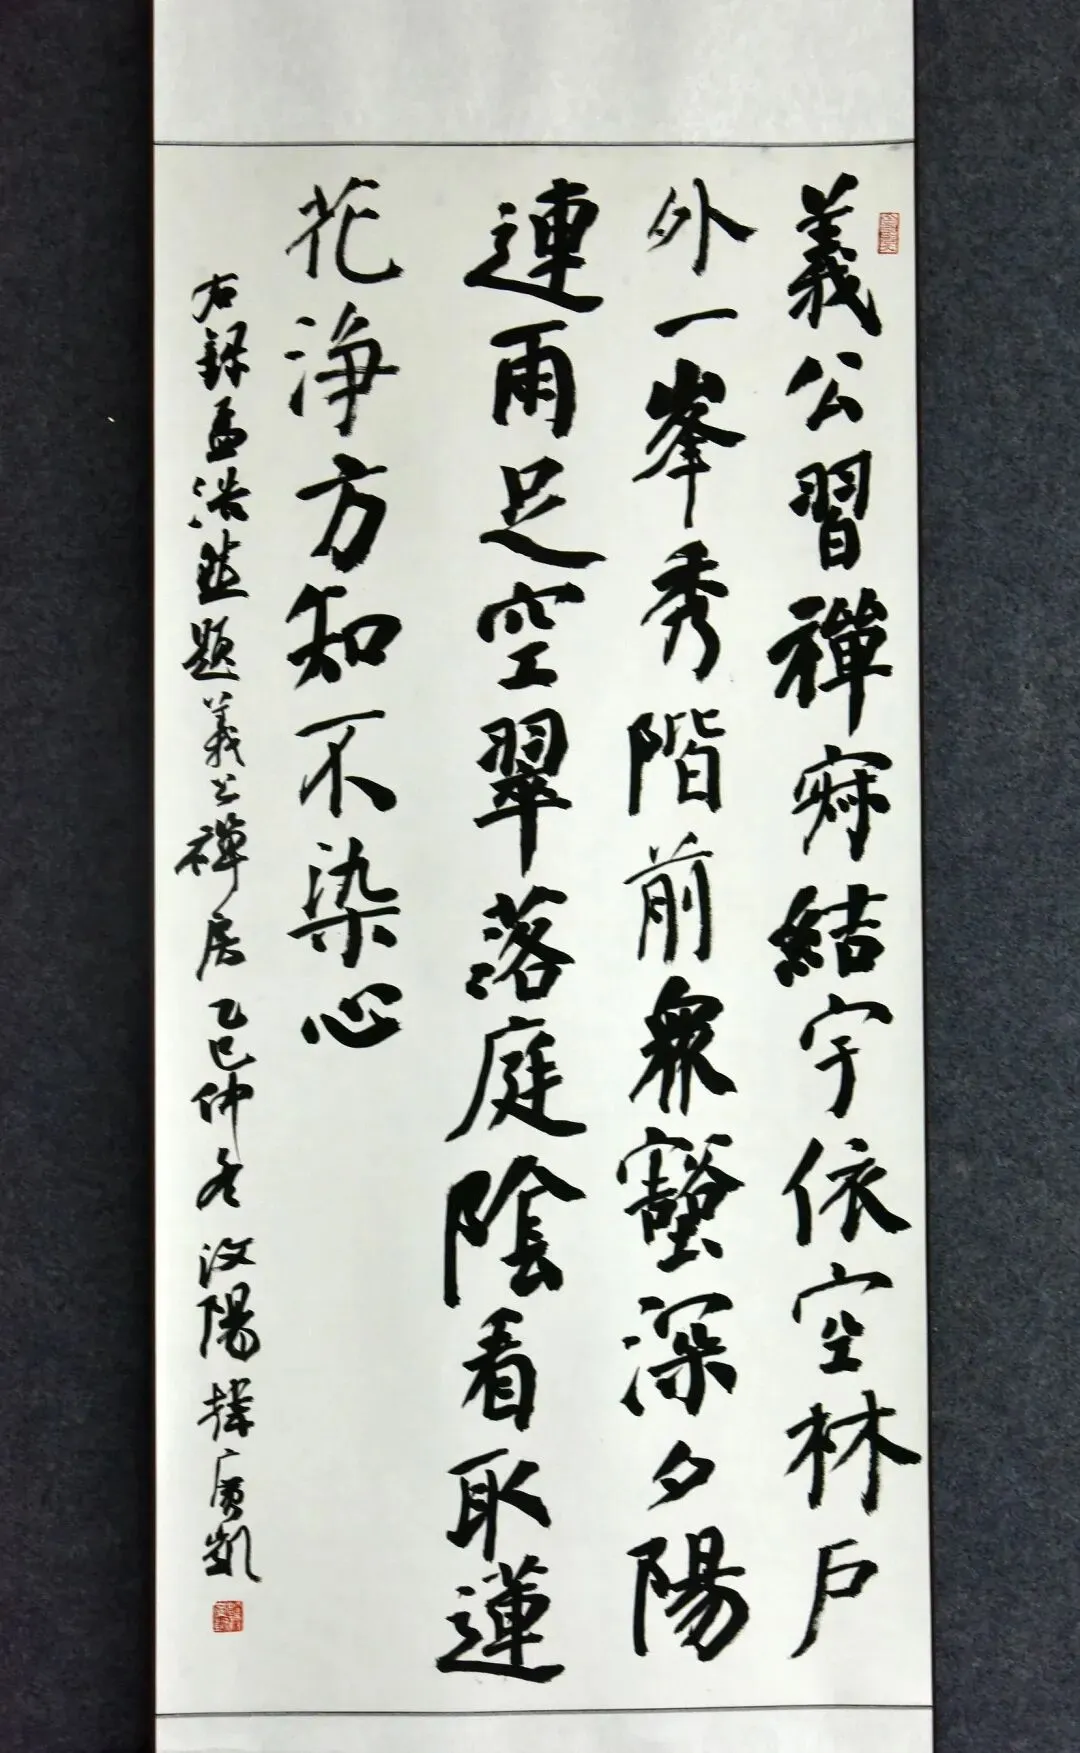 義公習禪寂結宇依空林戶
外一峯秀階前衆壑深夕陽
連雨足空翠落庭陰看取蓮
花淨方知不染心
右錄孟浩然題義公禪房乙巳仲冬汶陽擇廣凱